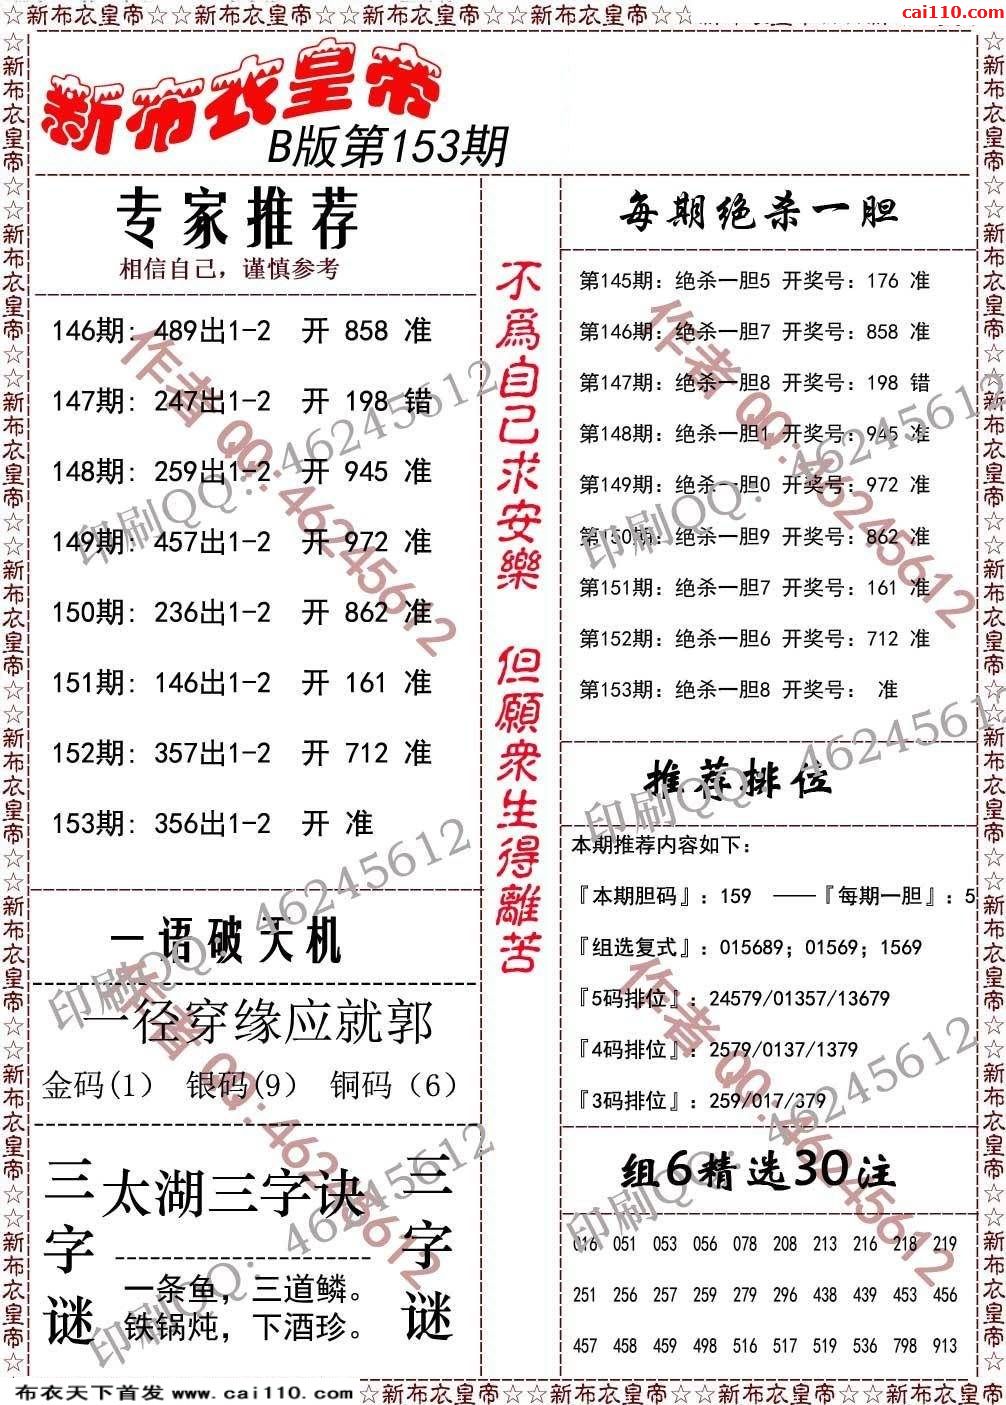 ☆新布衣皇帝☆☆新布衣皇帝☆☆新布衣皇帝☆☆新布衣皇帝☆☆
cai110.com
新布衣皇帝
B版第153期
专家推荐
相信自己，谨慎参考
146期: 489出1-2 开 858 准
147期: 247出1-2 开 198 错
148期: 259出1-2 开 945 准
149期: 457出1-2 开 972 准
150期: 236出1-2 开 862 准
151期: 146出1-2 开 161 准
152期: 357出1-2 开 712 准
153期: 356出1-2 开 准
一语破天机
一径穿缘应就郭
金码(1) 银码(9) 铜码（6）
三字谜
太湖三字诀
一条鱼，三道鳞。
铁锅炖，下酒珍。
三字谜
不為自己求安樂 但願衆生得離苦
每期绝杀一胆
第145期: 绝杀一胆5 开奖号: 176 准
第146期: 绝杀一胆7 开奖号: 858 准
第147期: 绝杀一胆8 开奖号: 198 错
第148期: 绝杀一胆1 开奖号: 945 准
第149期: 绝杀一胆0 开奖号: 972 准
第150期: 绝杀一胆9 开奖号: 862 准
第151期: 绝杀一胆7 开奖号: 161 准
第152期: 绝杀一胆6 开奖号: 712 准
第153期: 绝杀一胆8 开奖号: 准
推荐排位
本期推荐内容如下:
『本期胆码』: 159 ——『每期一胆』: 5
『组选复式』: 015689; 01569; 1569
『5码排位』: 24579/01357/13679
『4码排位』: 2579/0137/1379
『3码排位』: 259/017/379
组6精选30注
016 051 053 056 078 208 213 216 218 219
251 256 257 259 279 296 438 439 453 456
457 458 459 498 516 517 519 536 798 913
作者 QQ: 46245612
印刷QQ: 46245612
作者 QQ: 46245612
印刷QQ: 46245612
印刷QQ: 46245612
作者 QQ: 46245612
印刷QQ: 46245612
作者 QQ: 46245612
印刷QQ: 46245612
印刷QQ: 46245612
☆新布衣皇帝☆☆新布衣皇帝☆☆新布衣皇帝☆☆新布衣皇帝☆☆新布衣皇帝☆☆新布衣皇帝☆☆新布衣皇帝☆☆新布衣皇帝☆
☆新布衣皇帝☆☆新布衣皇帝☆☆新布衣皇帝☆☆新布衣皇帝☆☆新布衣皇帝☆☆新布衣皇帝☆☆新布衣皇帝☆☆新布衣皇帝☆
布衣天下首发 www.cai110.com
☆新布衣皇帝☆☆新布衣皇帝☆☆新布衣皇帝☆☆新布衣皇帝☆